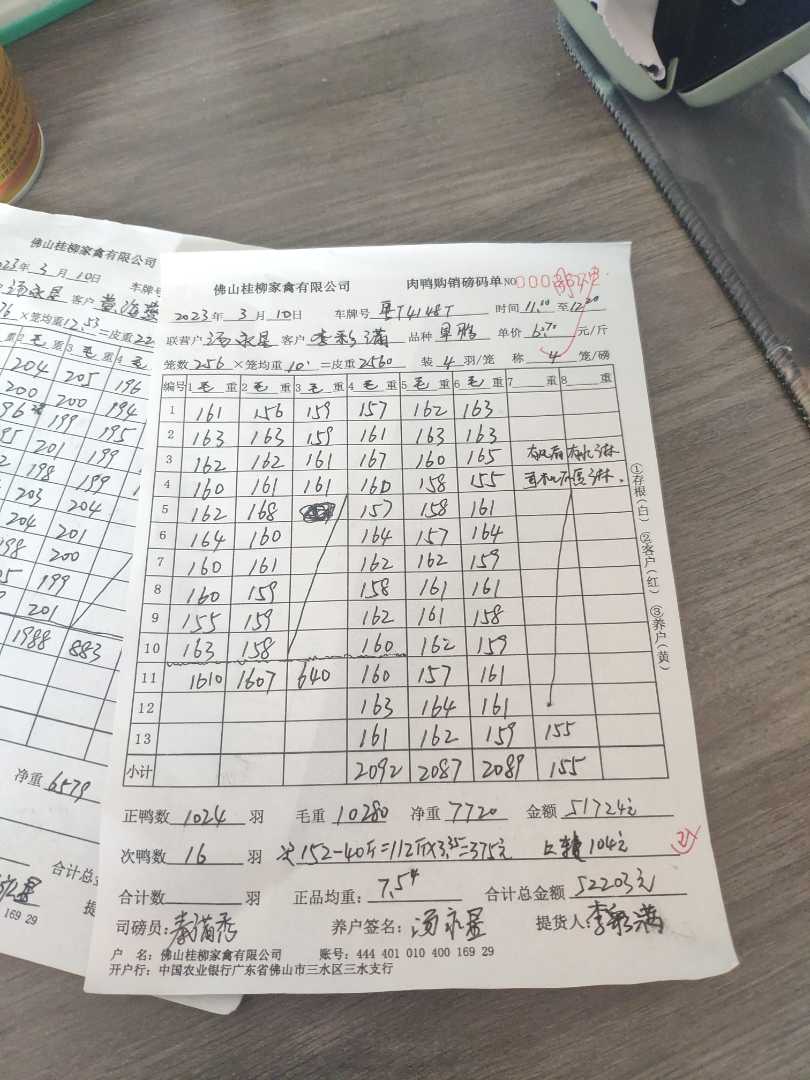 佛山桂柳家禽有限公司 肉鸭购销磅码单 NO
2023年 3 月 10日 车牌号 粤T4148T 时间 11.00 至12.20
联营户 汤永星 客户 李彩满 品种 单价 6.70 元/斤
笼数 256 ×笼均重 10 =皮重 2560 装 4 羽/笼 称 4 笼/磅
编号 1 毛 重 2 毛 重 3 毛 重 4 毛 重 5 毛 重 6 毛 重 7 重 8 重
1 161 156 159 157 162 163
2 163 163 159 161 163 163
3 162 162 161 167 160 165
4 160 161 161 160 158 155
5 162 168 157 158 161
6 164 160 164 157 164
7 160 161 162 162 159
8 160 159 158 161 161
9 155 159 162 161 158
10 163 158 160 162 159
11 1610 1607 640 160 157 161
12 163 164 161
13 161 162 159 155
小计 2092 2087 2089 155
正鸭数 1024 羽 毛重 10280 净重 7720 金额 51724元
次鸭数 16 羽 次152-40斤=112斤×3.35=375元 104元
合计数 羽 正品均重: 7.54 合计总金额 52203元
司磅员: 养户签名: 汤永星 提货人: 李彩满
户 名: 佛山桂柳家禽有限公司 账号: 444 401 010 400 169 29
开户行: 中国农业银行广东省佛山市三水区三水支行
①存根(白) ②客户(红) ③养户(黄)
佛山桂柳家禽有限公司
2023年 3 月 10日 车牌号
汤永星 客户
×笼均重 12.53 =皮重
2 毛 重 3 毛 重 4
204 205 196
200 200 194
199 195
201 199
198 199
203 204
204 201
198 200
199
201
1988 883
净重 6579
合计总金
提
169 29